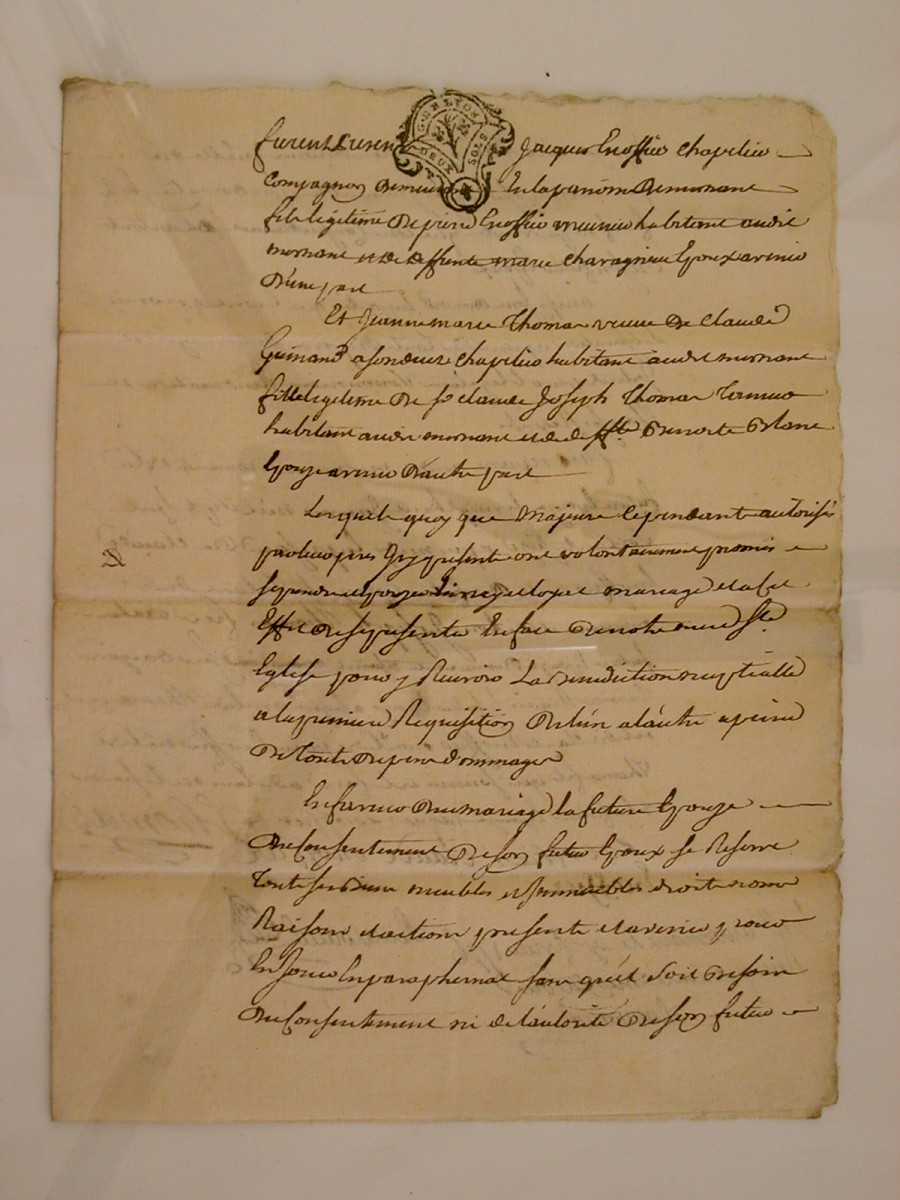 G. DE LYON
DEUX SOLS
furent présents Jacques chapelier
Compagnon demeurant En la paroisse de mornant
fils légitime de pierre habitant audit
mornant et de deffunte marie charagnieu Epoux avenir
D'une part
Et Jeanne marie Thomas veuve de Claude
Guinand a son deces chapelier habitant audit mornant
fille légitime de sr claude Joseph Thomas
habitant audit mornant et de deffte Benoite Blanc
Epouze avenir D'autre part
Lesquels quoy que Majeurs cependant authorisés
de leurs peres Icy présents ont volontairement promis
se prendre et Epouzer En vray et loyal mariage et a cet
Effet de se présenter En face de notre mere Ste
Eglise pour y Recevoir La Benediction nuptialle
a la premiere Requisition De l'un a l'autre a peine
De tous Depens dommages
En faveur Du mariage la future Epouze
Du Consentement De son futur Epoux se Reserve
Tous ses Biens meubles et Immeubles droits noms
Raisons et actions présents et avenir pour
En Jouir En paraphernal sans qu'il soit Besoin
Du Consentement ni de l'autorité De son futur